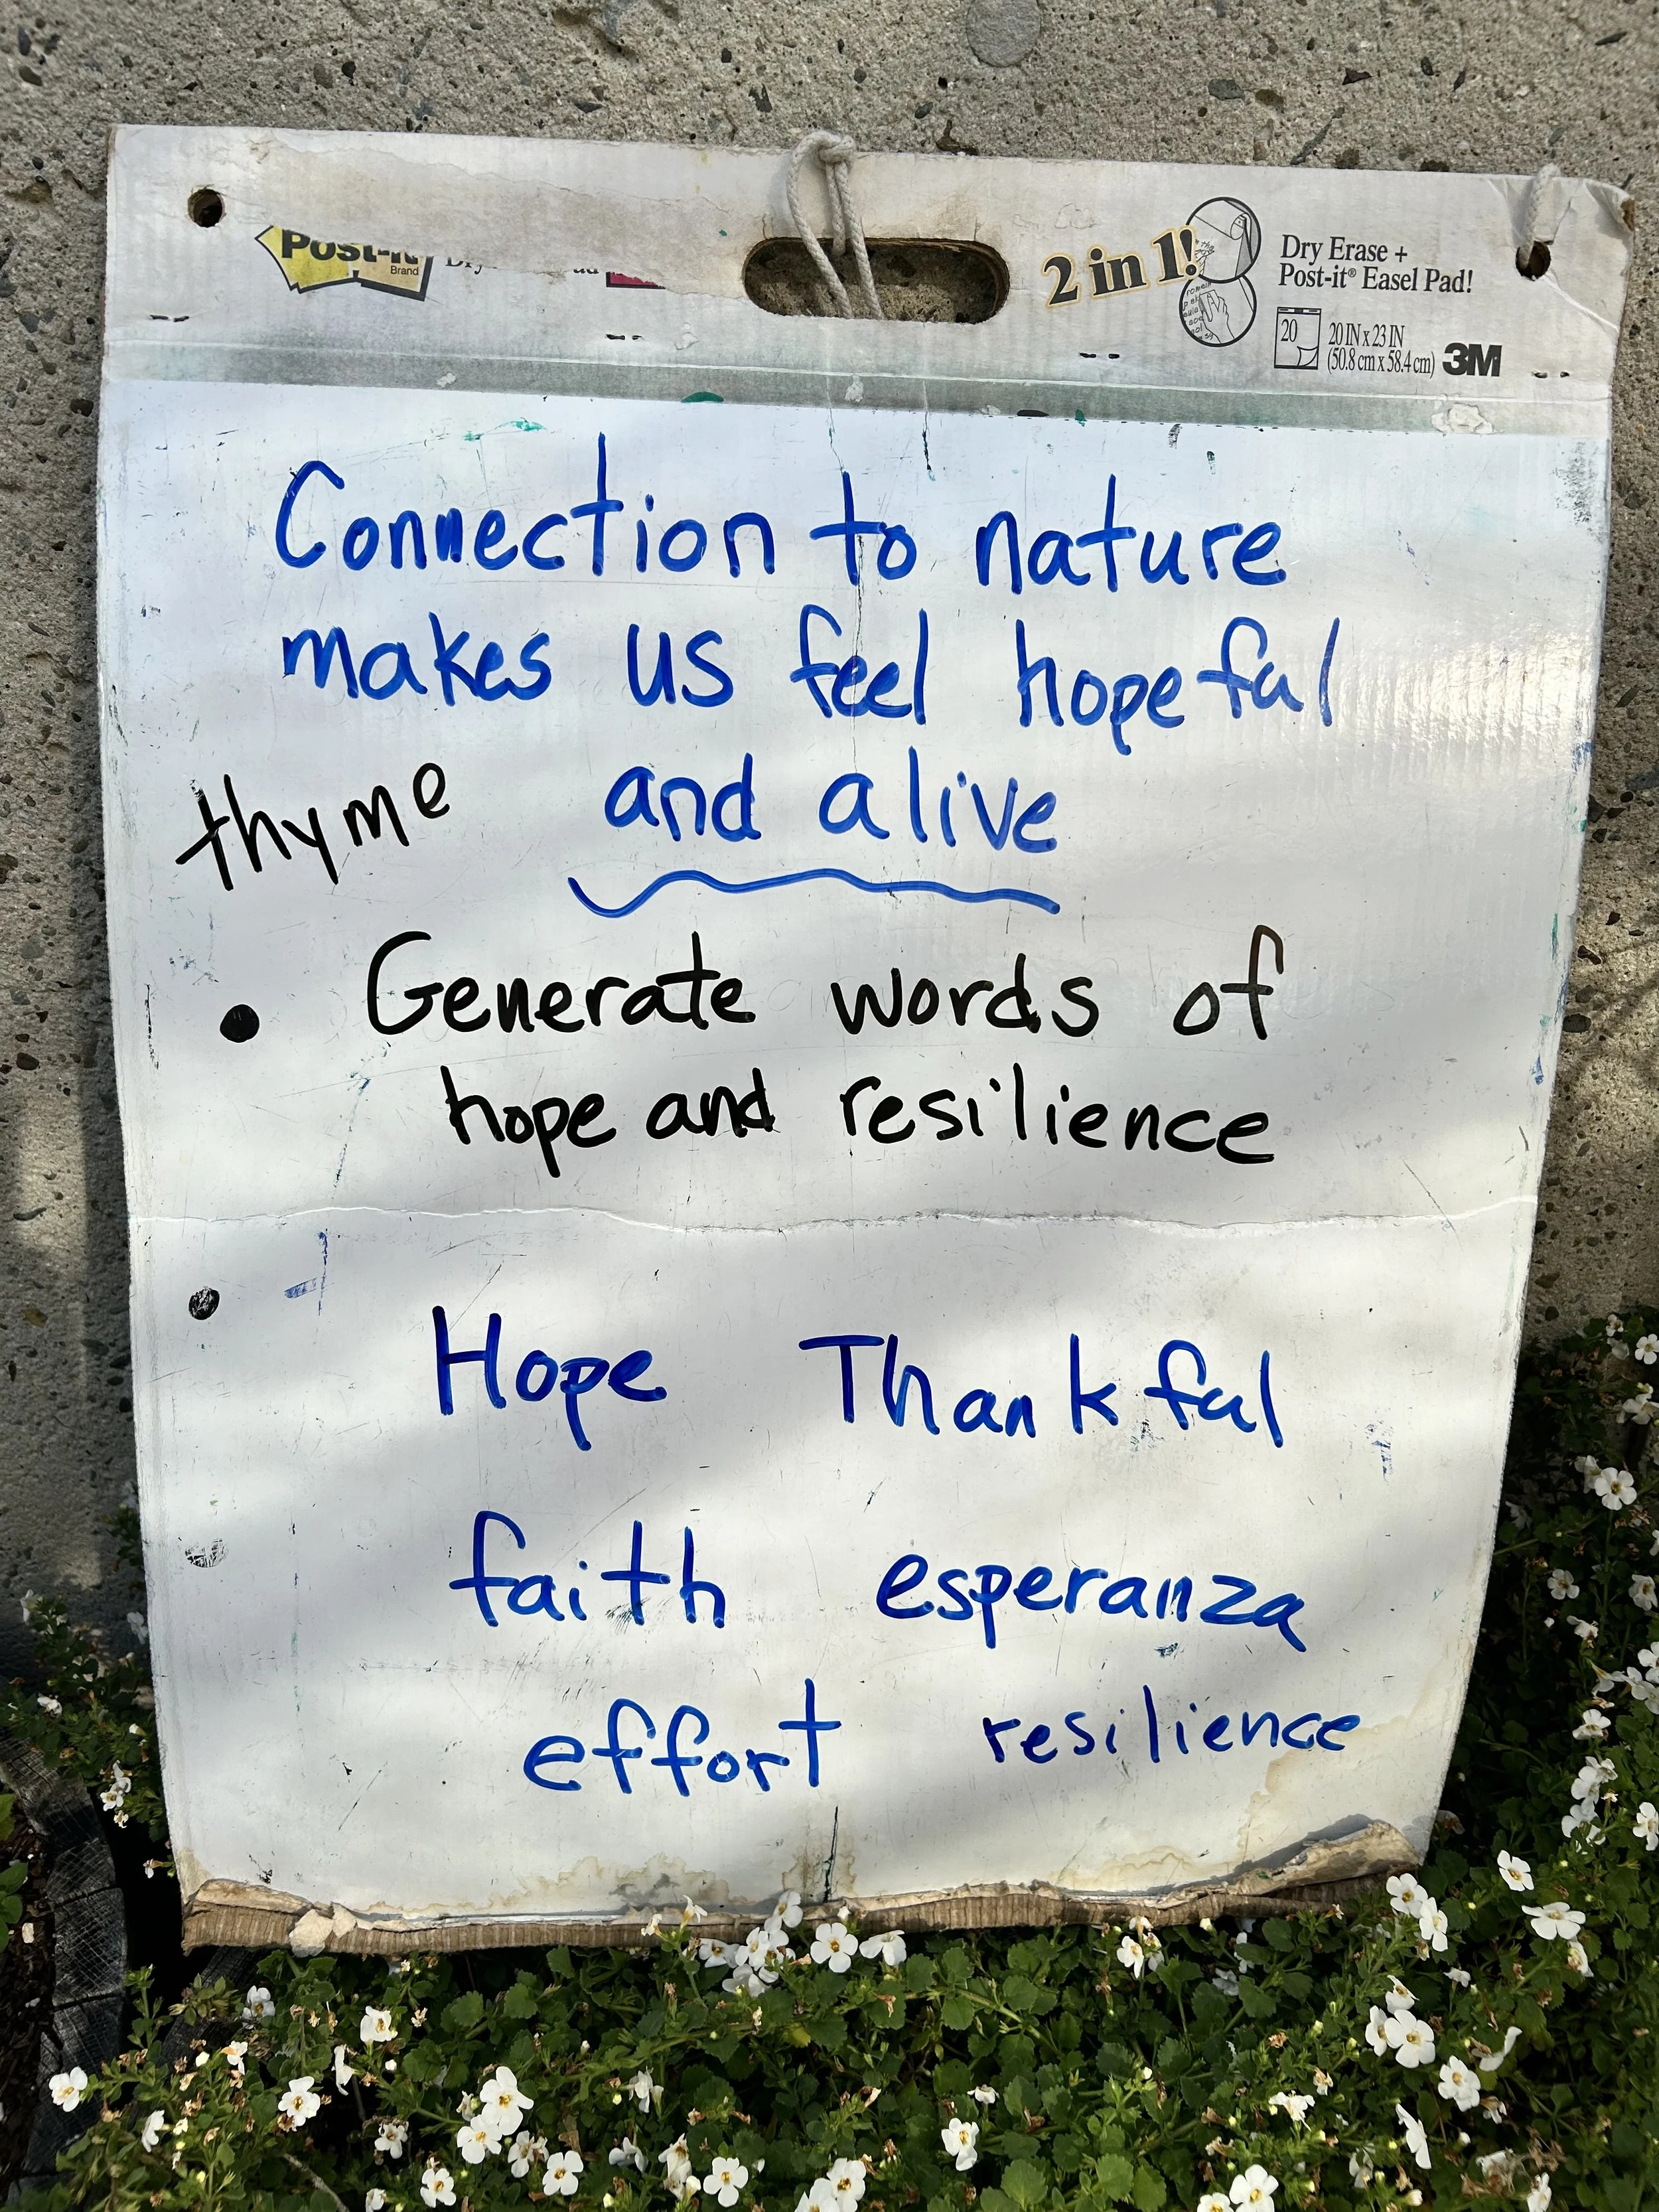 Post-it
Brand
2 in 1!
Dry Erase +
Post-it® Easel Pad!
20
20 IN x 23 IN
(50.8 cm x 58.4 cm)
3M
Connection to nature
makes us feel hopeful
thyme and alive
• Generate words of
hope and resilience
•
Hope Thankful
faith esperanza
effort resilience